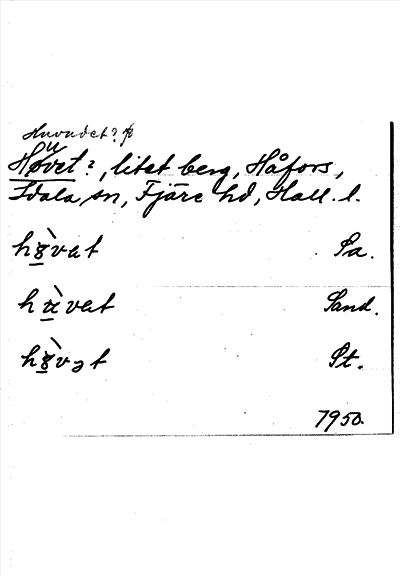 Huvudet?
Huvet?, litet berg, Håfors,
Idala sn, Fjäre hd, Hall. l.
hȣ̀vat Pa.
hùvat Sand.
hȣ̀vət St.
7950.